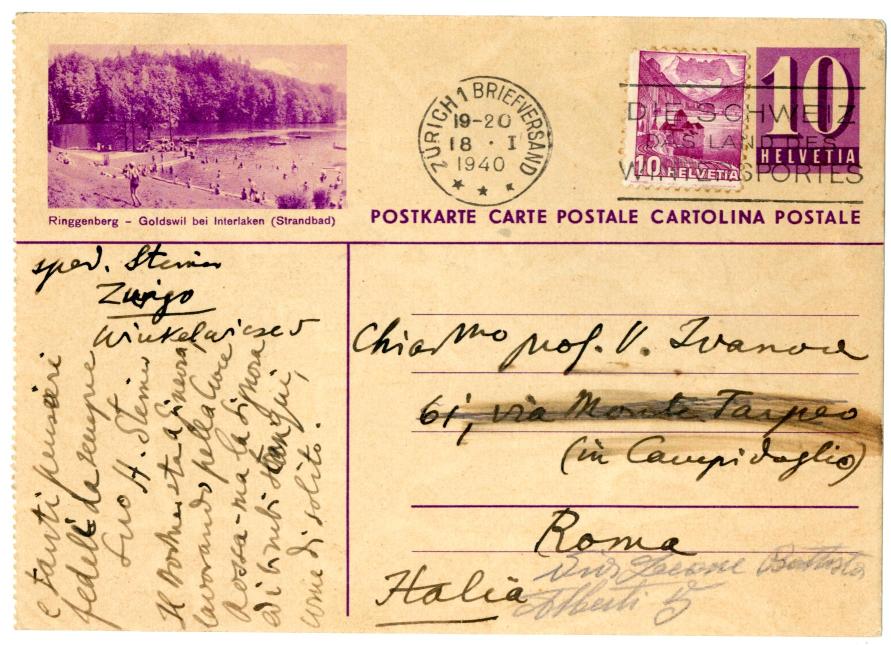 ZÜRICH 1 BRIEFVERSAND
19-20
18 · I
1940
DIE SCHWEIZ
DAS LAND DES
WINTERSPORTES
10 HELVETIA
10
HELVETIA
Ringgenberg – Goldswil bei Interlaken (Strandbad)
POSTKARTE CARTE POSTALE CARTOLINA POSTALE
sped. Steiner
Zurigo
Winkelwiese 5
Chiar^mo prof. V. Ivanov
61, via Monte Tarpeo
(in Campidoglio)
Roma
Italia
Leone Battista
Alberti 5
e tanti pensieri
fedeli da sempre
Suo H. Steiner
Il è a Ginevra
lavorando pella Croce
Rossa - ma la Signora
ed i bimbi
come di solito.